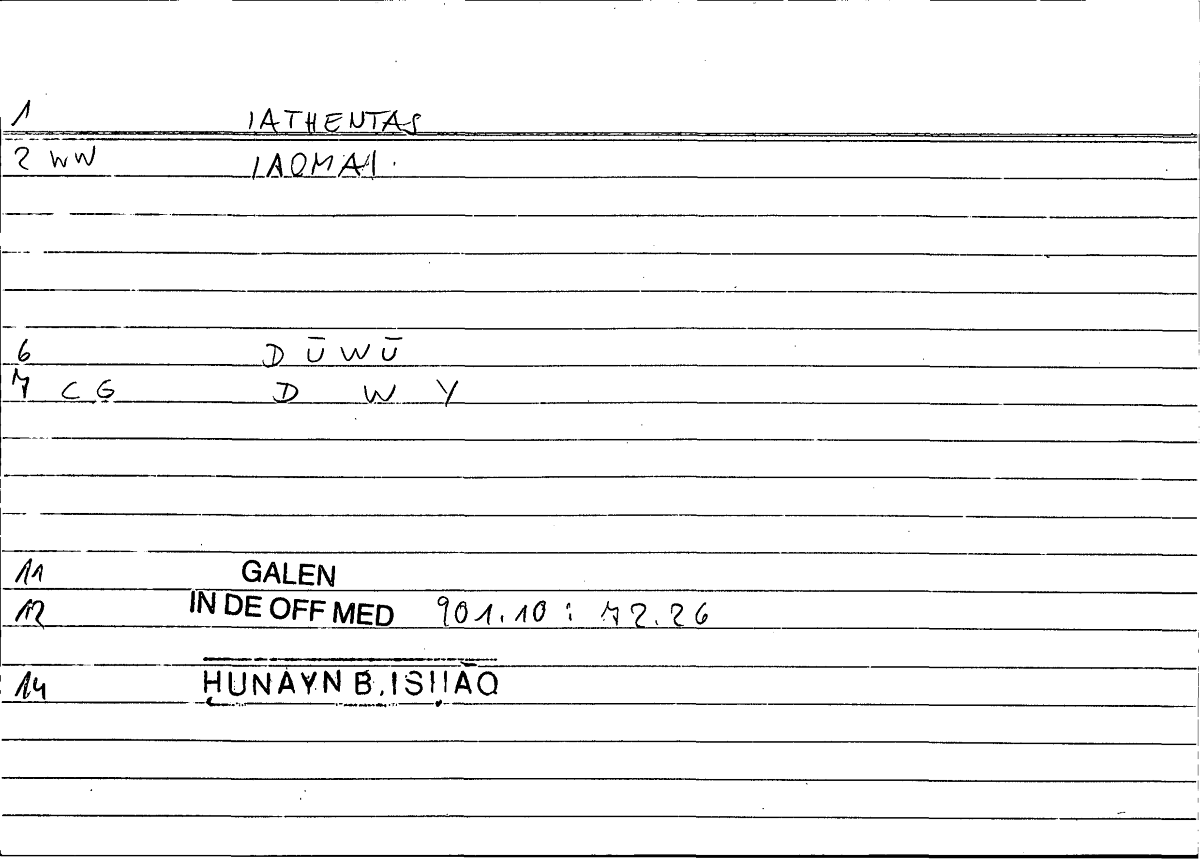 1 IATHENTAS
2 WW IAOMAI.
6 D Ū W Ū
7 C G D W Y
11 GALEN
12 IN DE OFF MED 901.10 : 72.26
14 HUNAYN B. ISḤĀQ